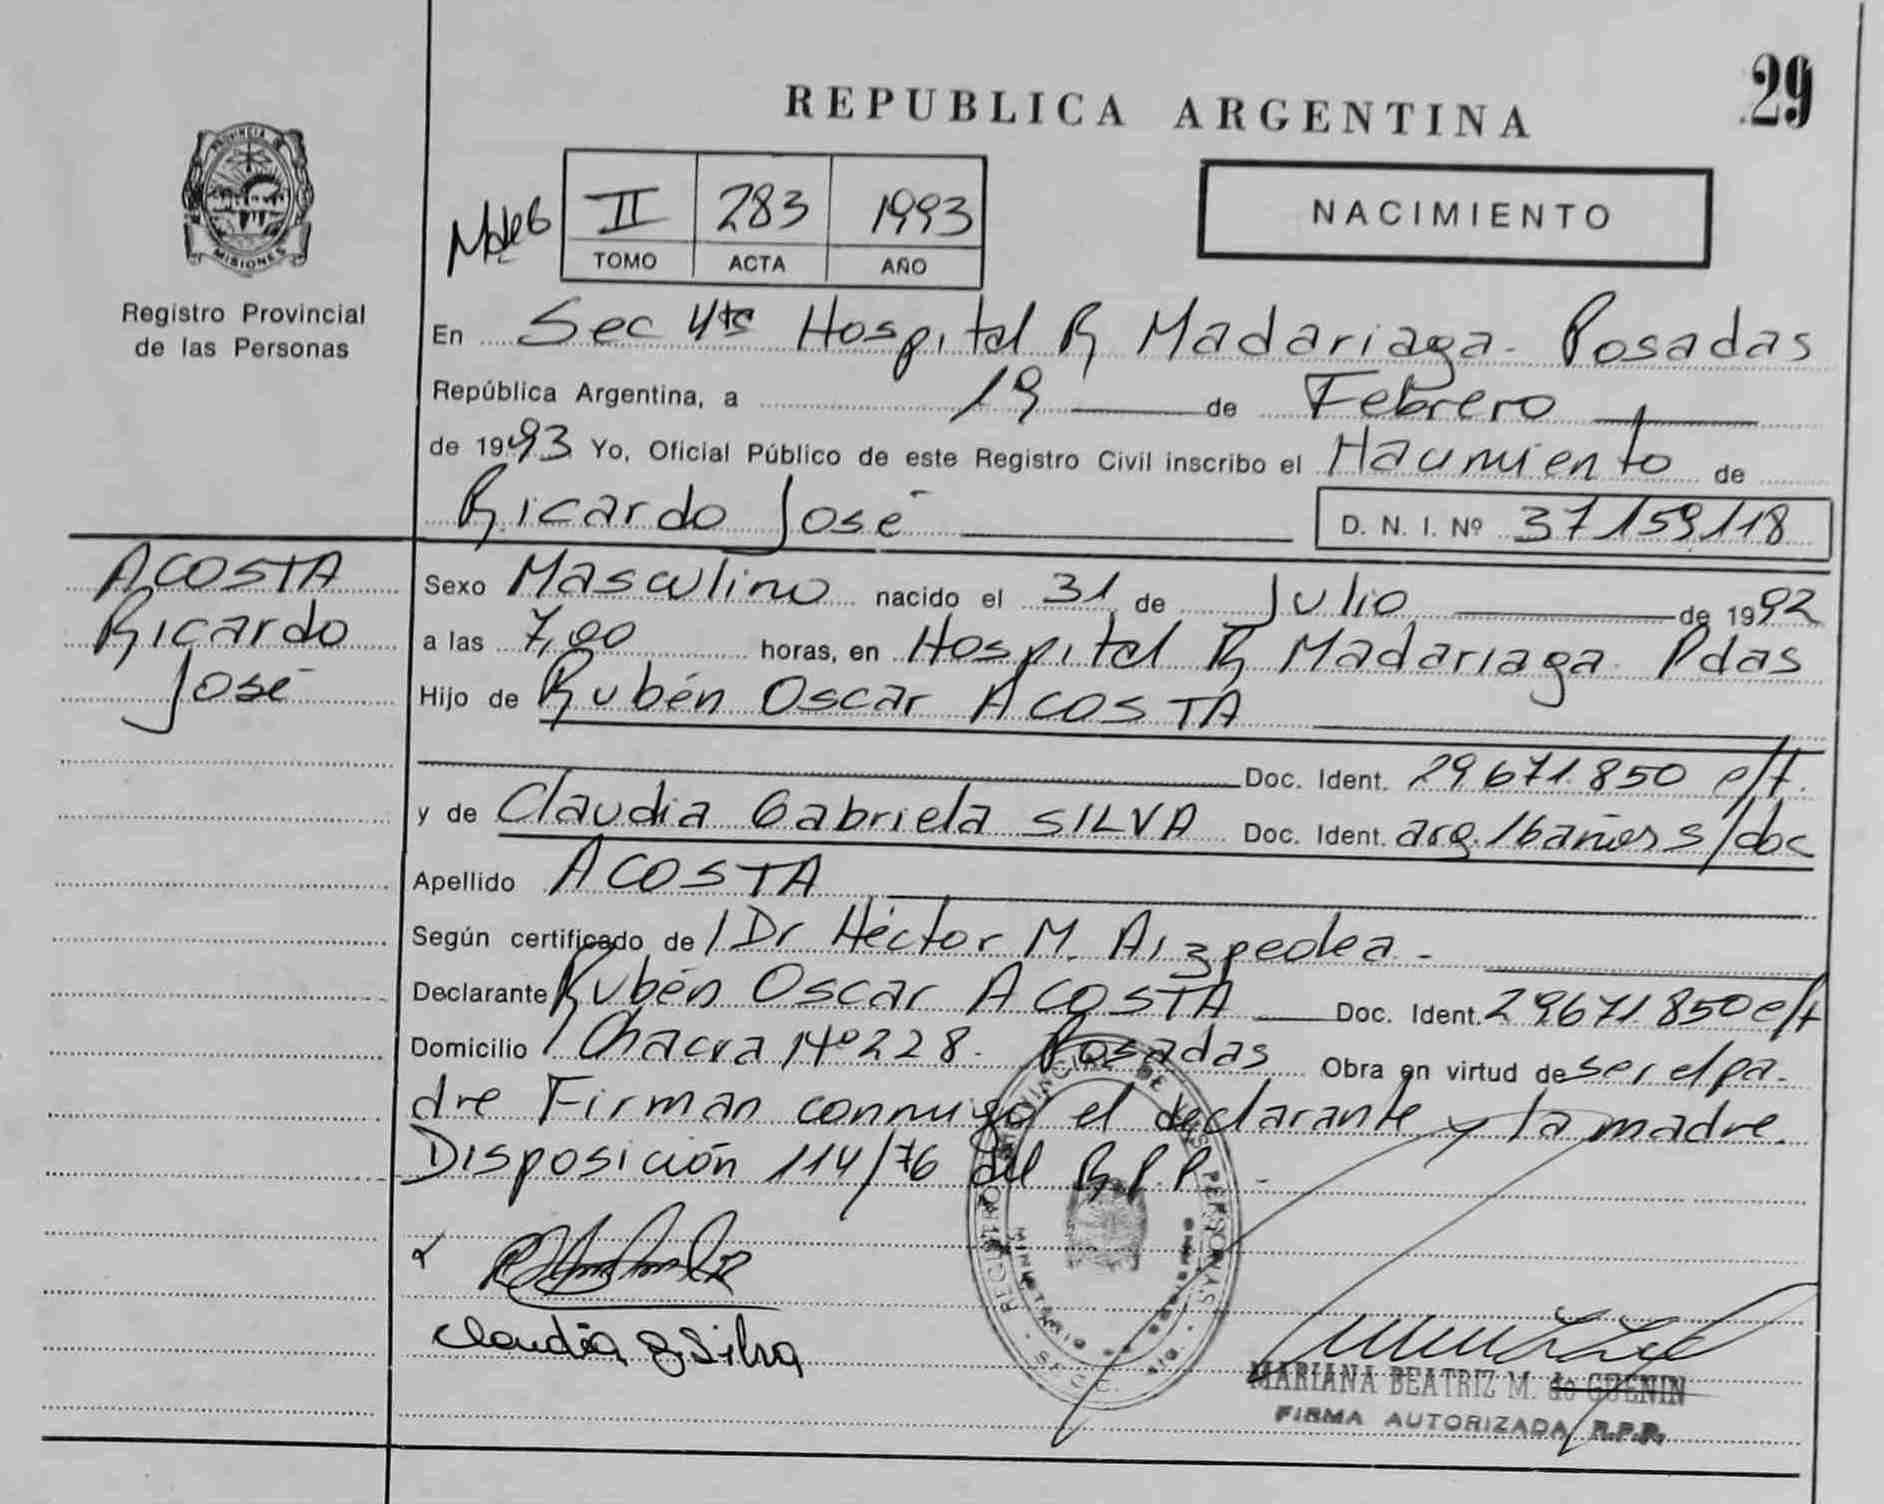 29
REPUBLICA ARGENTINA
PROVINCIA DE
MISIONES
Registro Provincial
de las Personas
II 283 1993
TOMO ACTA AÑO
NACIMIENTO
En Sec 4ta Hospital R Madariaga - Posadas
República Argentina, a 19 de Febrero
de 1993 Yo, Oficial Público de este Registro Civil inscribo el Nacimiento de
Ricardo José D. N. I. Nº 37159118
ACOSTA
Ricardo
José
Sexo Masculino nacido el 31 de Julio de 1992
a las 7,00 horas, en Hospital R Madariaga Pdas
Hijo de Rubén Oscar ACOSTA
Doc. Ident. 29.671.850 e/t.
y de Claudia Gabriela SILVA Doc. Ident. arg. 16 años s/doc
Apellido ACOSTA
Según certificado de Dr Héctor M. Aizpeolea -
Declarante Rubén Oscar ACOSTA Doc. Ident. 29671850 e/t
Domicilio Chacra Nº 228 - Posadas Obra en virtud de ser el pa-
dre Firman conmigo el declarante y la madre.
Disposición 114/76 del R.P.P. -
Claudia G Silva
MARIANA BEATRIZ M. de GUENIN
FIRMA AUTORIZADA R.P.P.